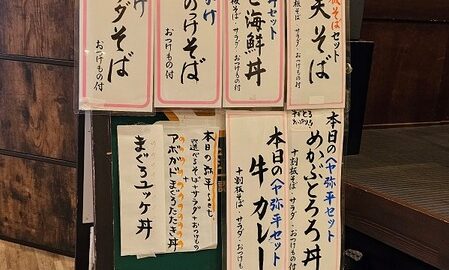 板そばセット
天そば
十割板そば・サラダ・おつけもの付
セット
海鮮丼
十割板そば・サラダ・おつけもの付
のっけそば
おつけもの付
ダそば
おつけもの付
本日のヘヤ弥平セット
めかぶとろろ丼
十割板そば・サラダ・おつけもの付
本日のヘヤ弥平セット
牛カレー
十割板そば・サラダ・おつけもの付
本日の弥平
選べるそば+サラダ・おつけもの
+
アボガドまぐろたたき丼
まぐろユッケ丼